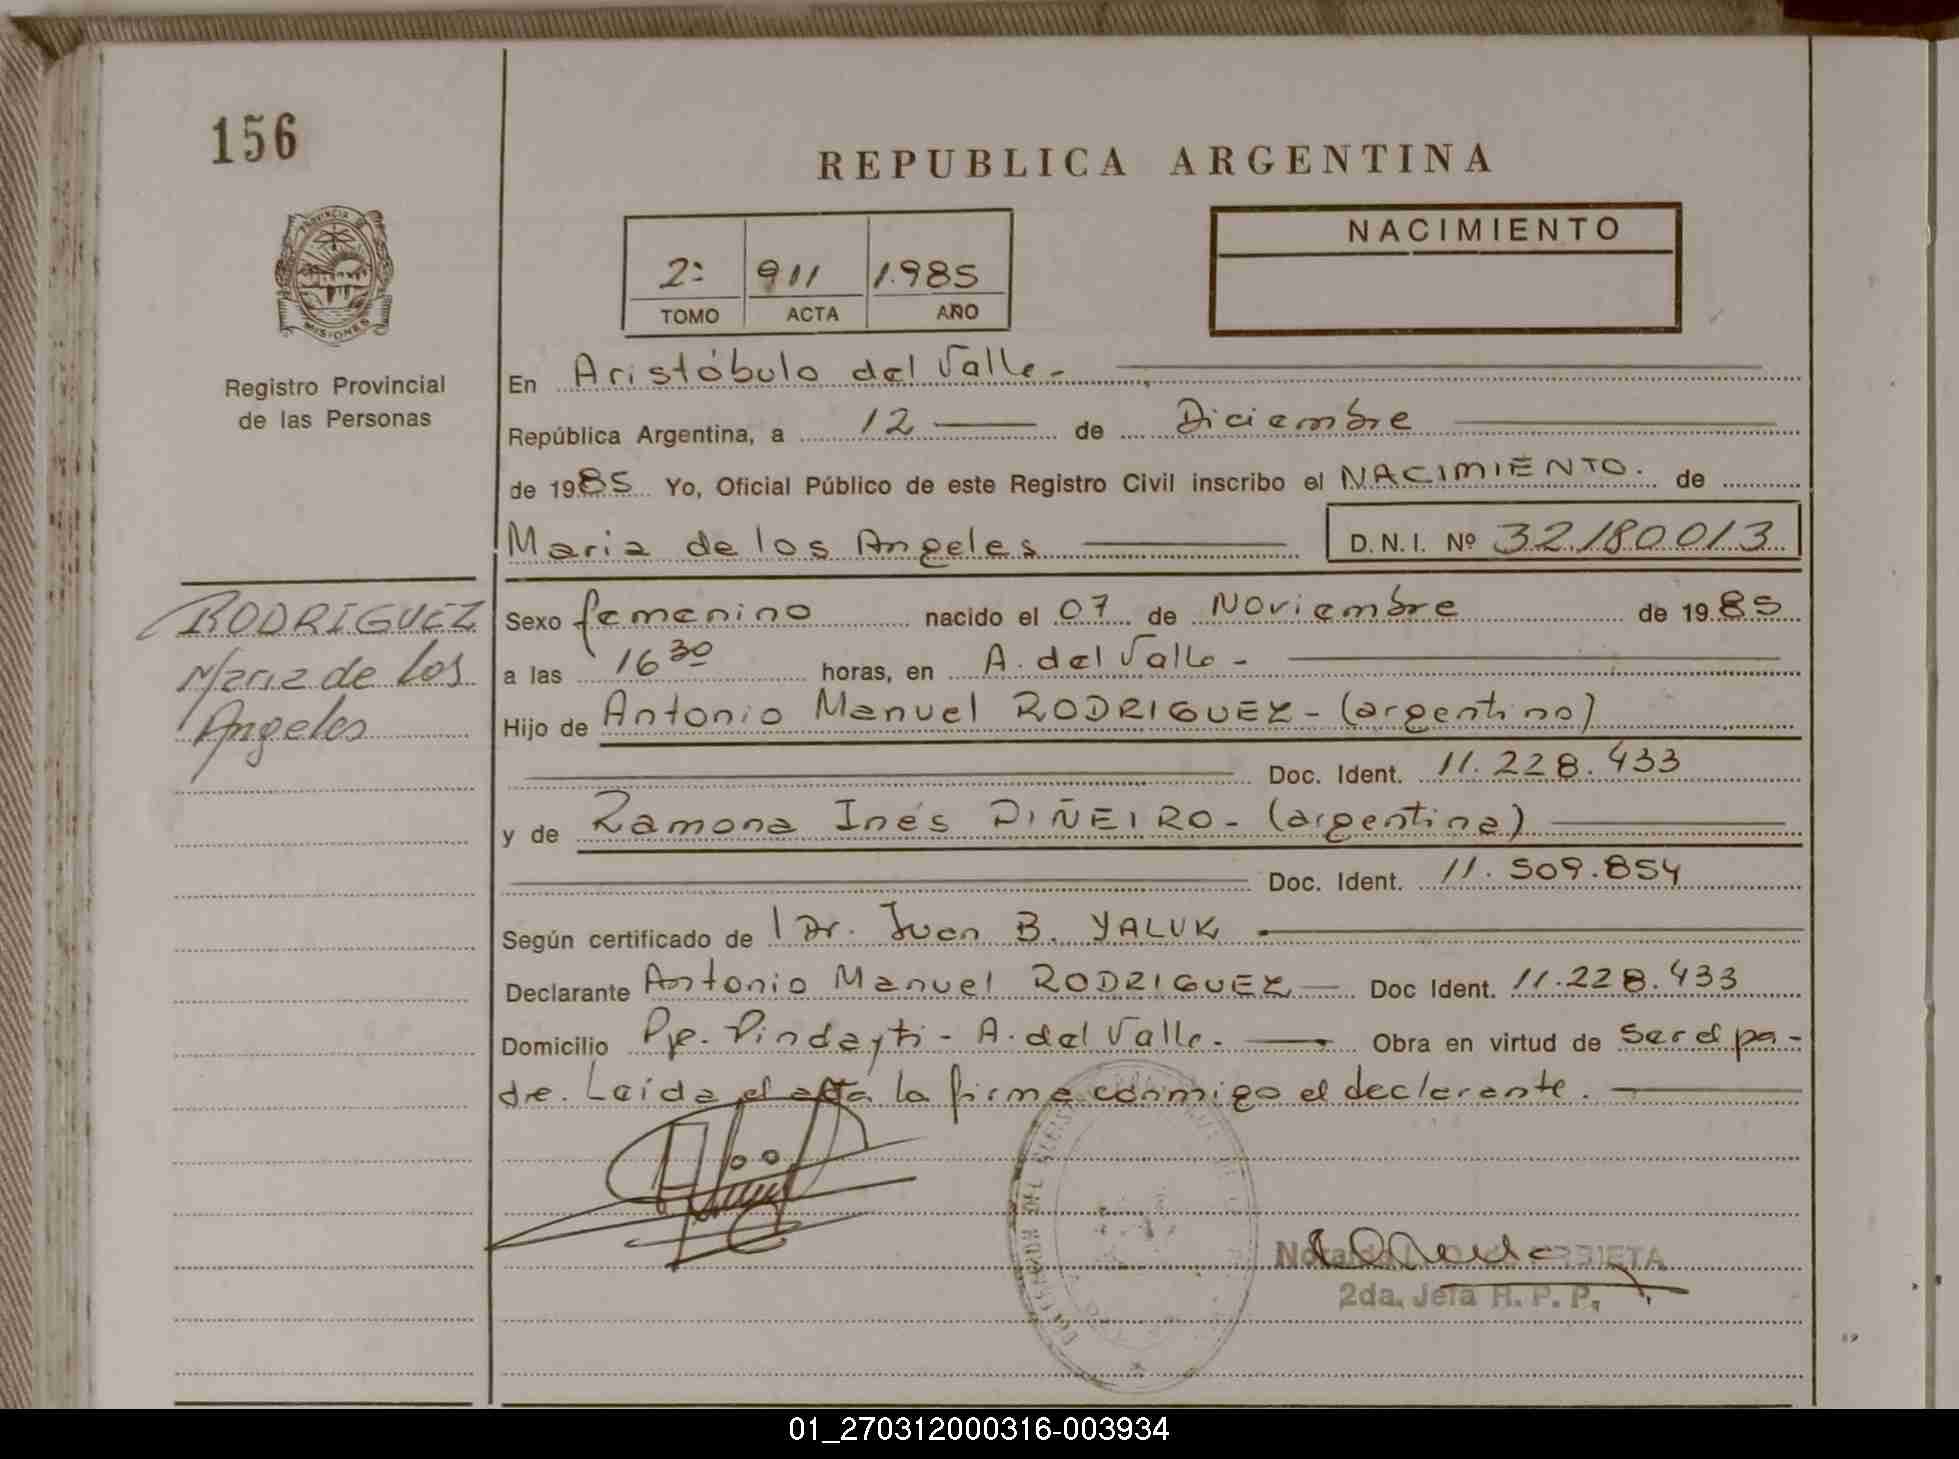 156
REPUBLICA ARGENTINA
PROVINCIA DE
MISIONES
Registro Provincial
de las Personas
2º 911 1.985
TOMO ACTA AÑO
NACIMIENTO
En Aristóbulo del Valle.-
República Argentina, a 12 de Diciembre
de 1985 Yo, Oficial Público de este Registro Civil inscribo el NACIMIENTO. de
Maria de los Angeles D.N.I. Nº 32.180.013
RODRIGUEZ
Maria de los
Angeles
Sexo femenino nacido el 07 de Noviembre de 1985
a las 16 30 horas, en A. del Valle -
Hijo de Antonio Manuel RODRIGUEZ - (argentino)
Doc. Ident. 11.228.433
y de Ramona Inés PIÑEIRO - (argentina)
Doc. Ident. 11.509.854
Según certificado de l Dr. Juan B. YALUK
Declarante Antonio Manuel RODRIGUEZ Doc Ident. 11.228.433
Domicilio Pje. Pindayti - A. del Valle. Obra en virtud de ser el pa-
dre. Leída el acta la firma conmigo el declarante.
2da. Jefa R. P. P.
01_270312000316-003934